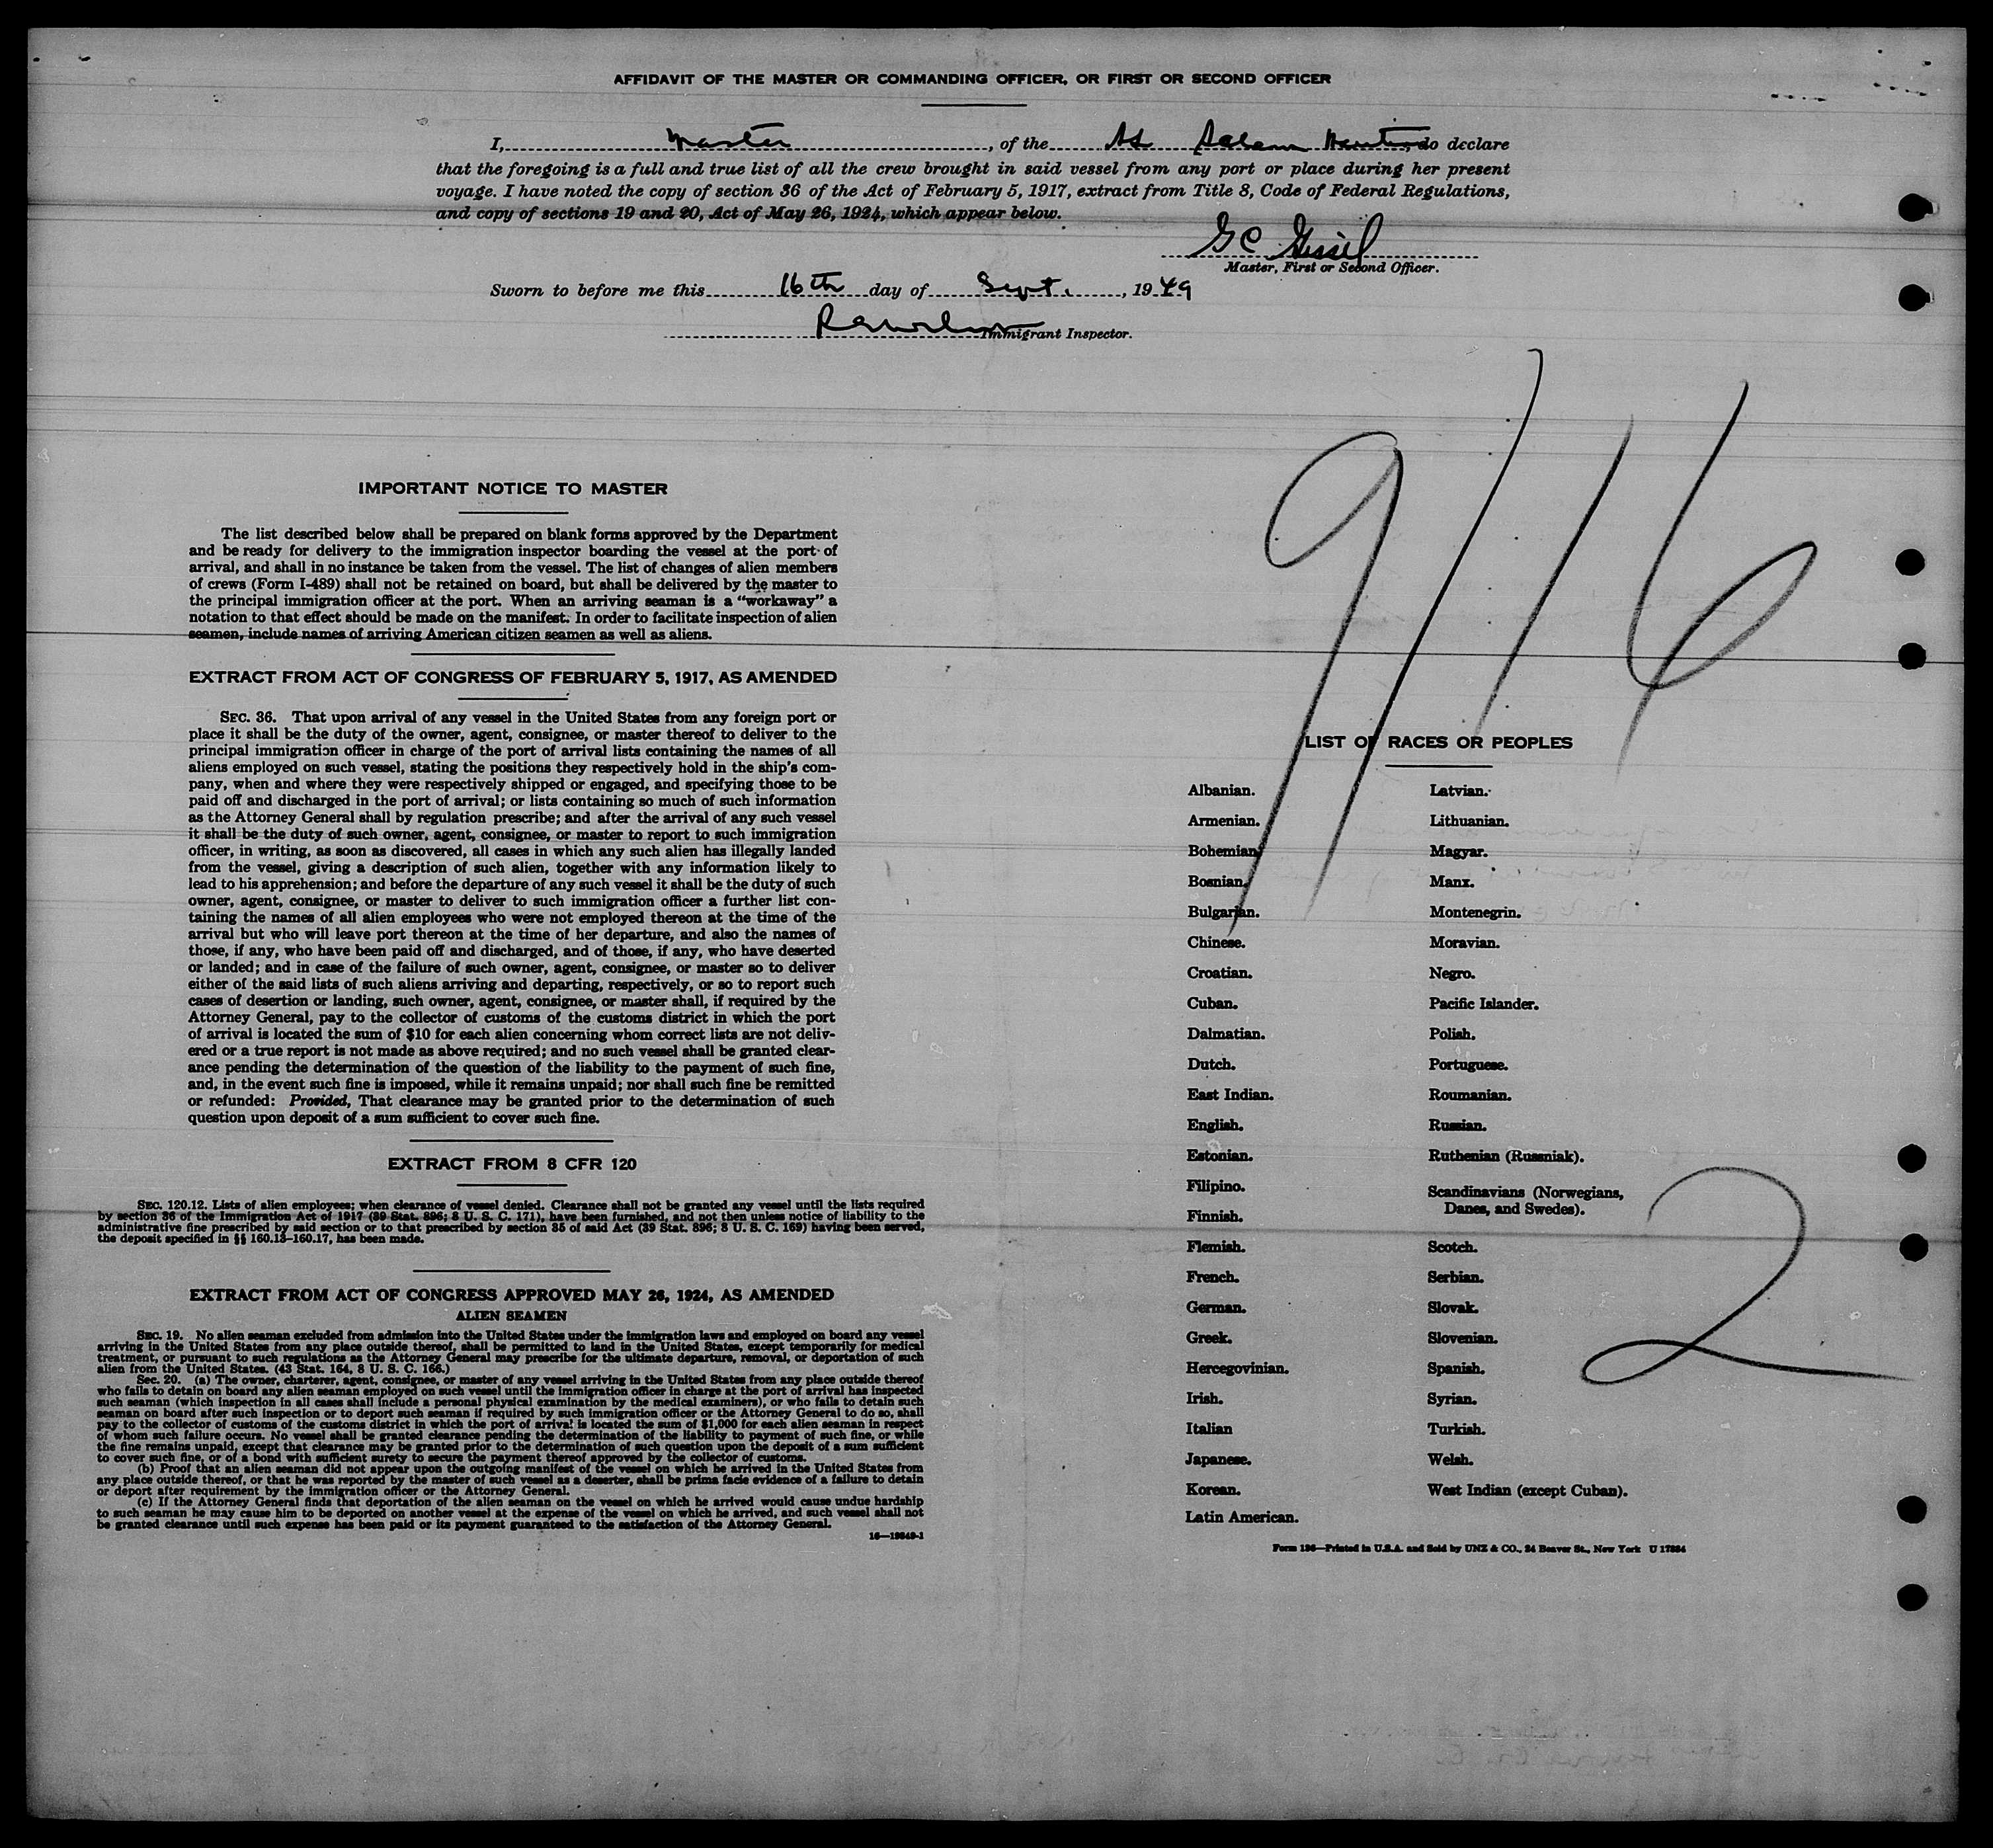 AFFIDAVIT OF THE MASTER OR COMMANDING OFFICER, OR FIRST OR SECOND OFFICER
I, Master, of the SS Salem Maritime, do declare
that the foregoing is a full and true list of all the crew brought in said vessel from any port or place during her present
voyage. I have noted the copy of section 36 of the Act of February 5, 1917, extract from Title 8, Code of Federal Regulations,
and copy of sections 19 and 20, Act of May 26, 1924, which appear below.
G C
Master, First or Second Officer.
Sworn to before me this 16th day of Sept., 1949
Immigrant Inspector.
9/16
IMPORTANT NOTICE TO MASTER
The list described below shall be prepared on blank forms approved by the Department
and be ready for delivery to the immigration inspector boarding the vessel at the port of
arrival, and shall in no instance be taken from the vessel. The list of changes of alien members
of crews (Form I-489) shall not be retained on board, but shall be delivered by the master to
the principal immigration officer at the port. When an arriving seaman is a "workaway" a
notation to that effect should be made on the manifest. In order to facilitate inspection of alien
seamen, include names of arriving American citizen seamen as well as aliens.
EXTRACT FROM ACT OF CONGRESS OF FEBRUARY 5, 1917, AS AMENDED
SEC. 36. That upon arrival of any vessel in the United States from any foreign port or
place it shall be the duty of the owner, agent, consignee, or master thereof to deliver to the
principal immigration officer in charge of the port of arrival lists containing the names of all
aliens employed on such vessel, stating the positions they respectively hold in the ship's com-
pany, when and where they were respectively shipped or engaged, and specifying those to be
paid off and discharged in the port of arrival; or lists containing so much of such information
as the Attorney General shall by regulation prescribe; and after the arrival of any such vessel
it shall be the duty of such owner, agent, consignee, or master to report to such immigration
officer, in writing, as soon as discovered, all cases in which any such alien has illegally landed
from the vessel, giving a description of such alien, together with any information likely to
lead to his apprehension; and before the departure of any such vessel it shall be the duty of such
owner, agent, consignee, or master to deliver to such immigration officer a further list con-
taining the names of all alien employees who were not employed thereon at the time of the
arrival but who will leave port thereon at the time of her departure, and also the names of
those, if any, who have been paid off and discharged, and of those, if any, who have deserted
or landed; and in case of the failure of such owner, agent, consignee, or master so to deliver
either of the said lists of such aliens arriving and departing, respectively, or so to report such
cases of desertion or landing, such owner, agent, consignee, or master shall, if required by the
Attorney General, pay to the collector of customs of the customs district in which the port
of arrival is located the sum of $10 for each alien concerning whom correct lists are not deliv-
ered or a true report is not made as above required; and no such vessel shall be granted clear-
ance pending the determination of the question of the liability to the payment of such fine,
and, in the event such fine is imposed, while it remains unpaid; nor shall such fine be remitted
or refunded: Provided, That clearance may be granted prior to the determination of such
question upon deposit of a sum sufficient to cover such fine.
EXTRACT FROM 8 CFR 120
SEC. 120.12. Lists of alien employees; when clearance of vessel denied. Clearance shall not be granted any vessel until the lists required
by section 36 of the Immigration Act of 1917 (39 Stat. 896; 8 U. S. C. 171), have been furnished, and not then unless notice of liability to the
administrative fine prescribed by said section or to that prescribed by section 35 of said Act (39 Stat. 896; 8 U. S. C. 169) having been served,
the deposit specified in §§ 160.13–160.17, has been made.
EXTRACT FROM ACT OF CONGRESS APPROVED MAY 26, 1924, AS AMENDED
ALIEN SEAMEN
SEC. 19. No alien seaman excluded from admission into the United States under the immigration laws and employed on board any vessel
arriving in the United States from any place outside thereof, shall be permitted to land in the United States, except temporarily for medical
treatment, or pursuant to such regulations as the Attorney General may prescribe for the ultimate departure, removal, or deportation of such
alien from the United States. (43 Stat. 164, 8 U. S. C. 166.)
Sec. 20. (a) The owner, charterer, agent, consignee, or master of any vessel arriving in the United States from any place outside thereof
who fails to detain on board any alien seaman employed on such vessel until the immigration officer in charge at the port of arrival has inspected
such seaman (which inspection in all cases shall include a personal physical examination by the medical examiners), or who fails to detain such
seaman on board after such inspection or to deport such seaman if required by such immigration officer or the Attorney General to do so, shall
pay to the collector of customs of the customs district in which the port of arrival is located the sum of $1,000 for each alien seaman in respect
of whom such failure occurs. No vessel shall be granted clearance pending the determination of the liability to payment of such fine, or while
the fine remains unpaid, except that clearance may be granted prior to the determination of such question upon the deposit of a sum sufficient
to cover such fine, or of a bond with sufficient surety to secure the payment thereof approved by the collector of customs.
(b) Proof that an alien seaman did not appear upon the outgoing manifest of the vessel on which he arrived in the United States from
any place outside thereof, or that he was reported by the master of such vessel as a deserter, shall be prima facie evidence of a failure to detain
or deport after requirement by the immigration officer or the Attorney General.
(c) If the Attorney General finds that deportation of the alien seaman on the vessel on which he arrived would cause undue hardship
to such seaman he may cause him to be deported on another vessel at the expense of the vessel on which he arrived, and such vessel shall not
be granted clearance until such expense has been paid or its payment guaranteed to the satisfaction of the Attorney General.
16—19849-1
LIST OF RACES OR PEOPLES
Albanian.
Armenian.
Bohemian.
Bosnian.
Bulgarian.
Chinese.
Croatian.
Cuban.
Dalmatian.
Dutch.
East Indian.
English.
Estonian.
Filipino.
Finnish.
Flemish.
French.
German.
Greek.
Hercegovinian.
Irish.
Italian
Japanese.
Korean.
Latin American.
Latvian.
Lithuanian.
Magyar.
Manx.
Montenegrin.
Moravian.
Negro.
Pacific Islander.
Polish.
Portuguese.
Roumanian.
Russian.
Ruthenian (Russniak).
Scandinavians (Norwegians,
Danes, and Swedes).
Scotch.
Serbian.
Slovak.
Slovenian.
Spanish.
Syrian.
Turkish.
Welsh.
West Indian (except Cuban).
2
Form 136—Printed in U.S.A. and Sold by UNZ & CO., 24 Beaver St., New York U 17884